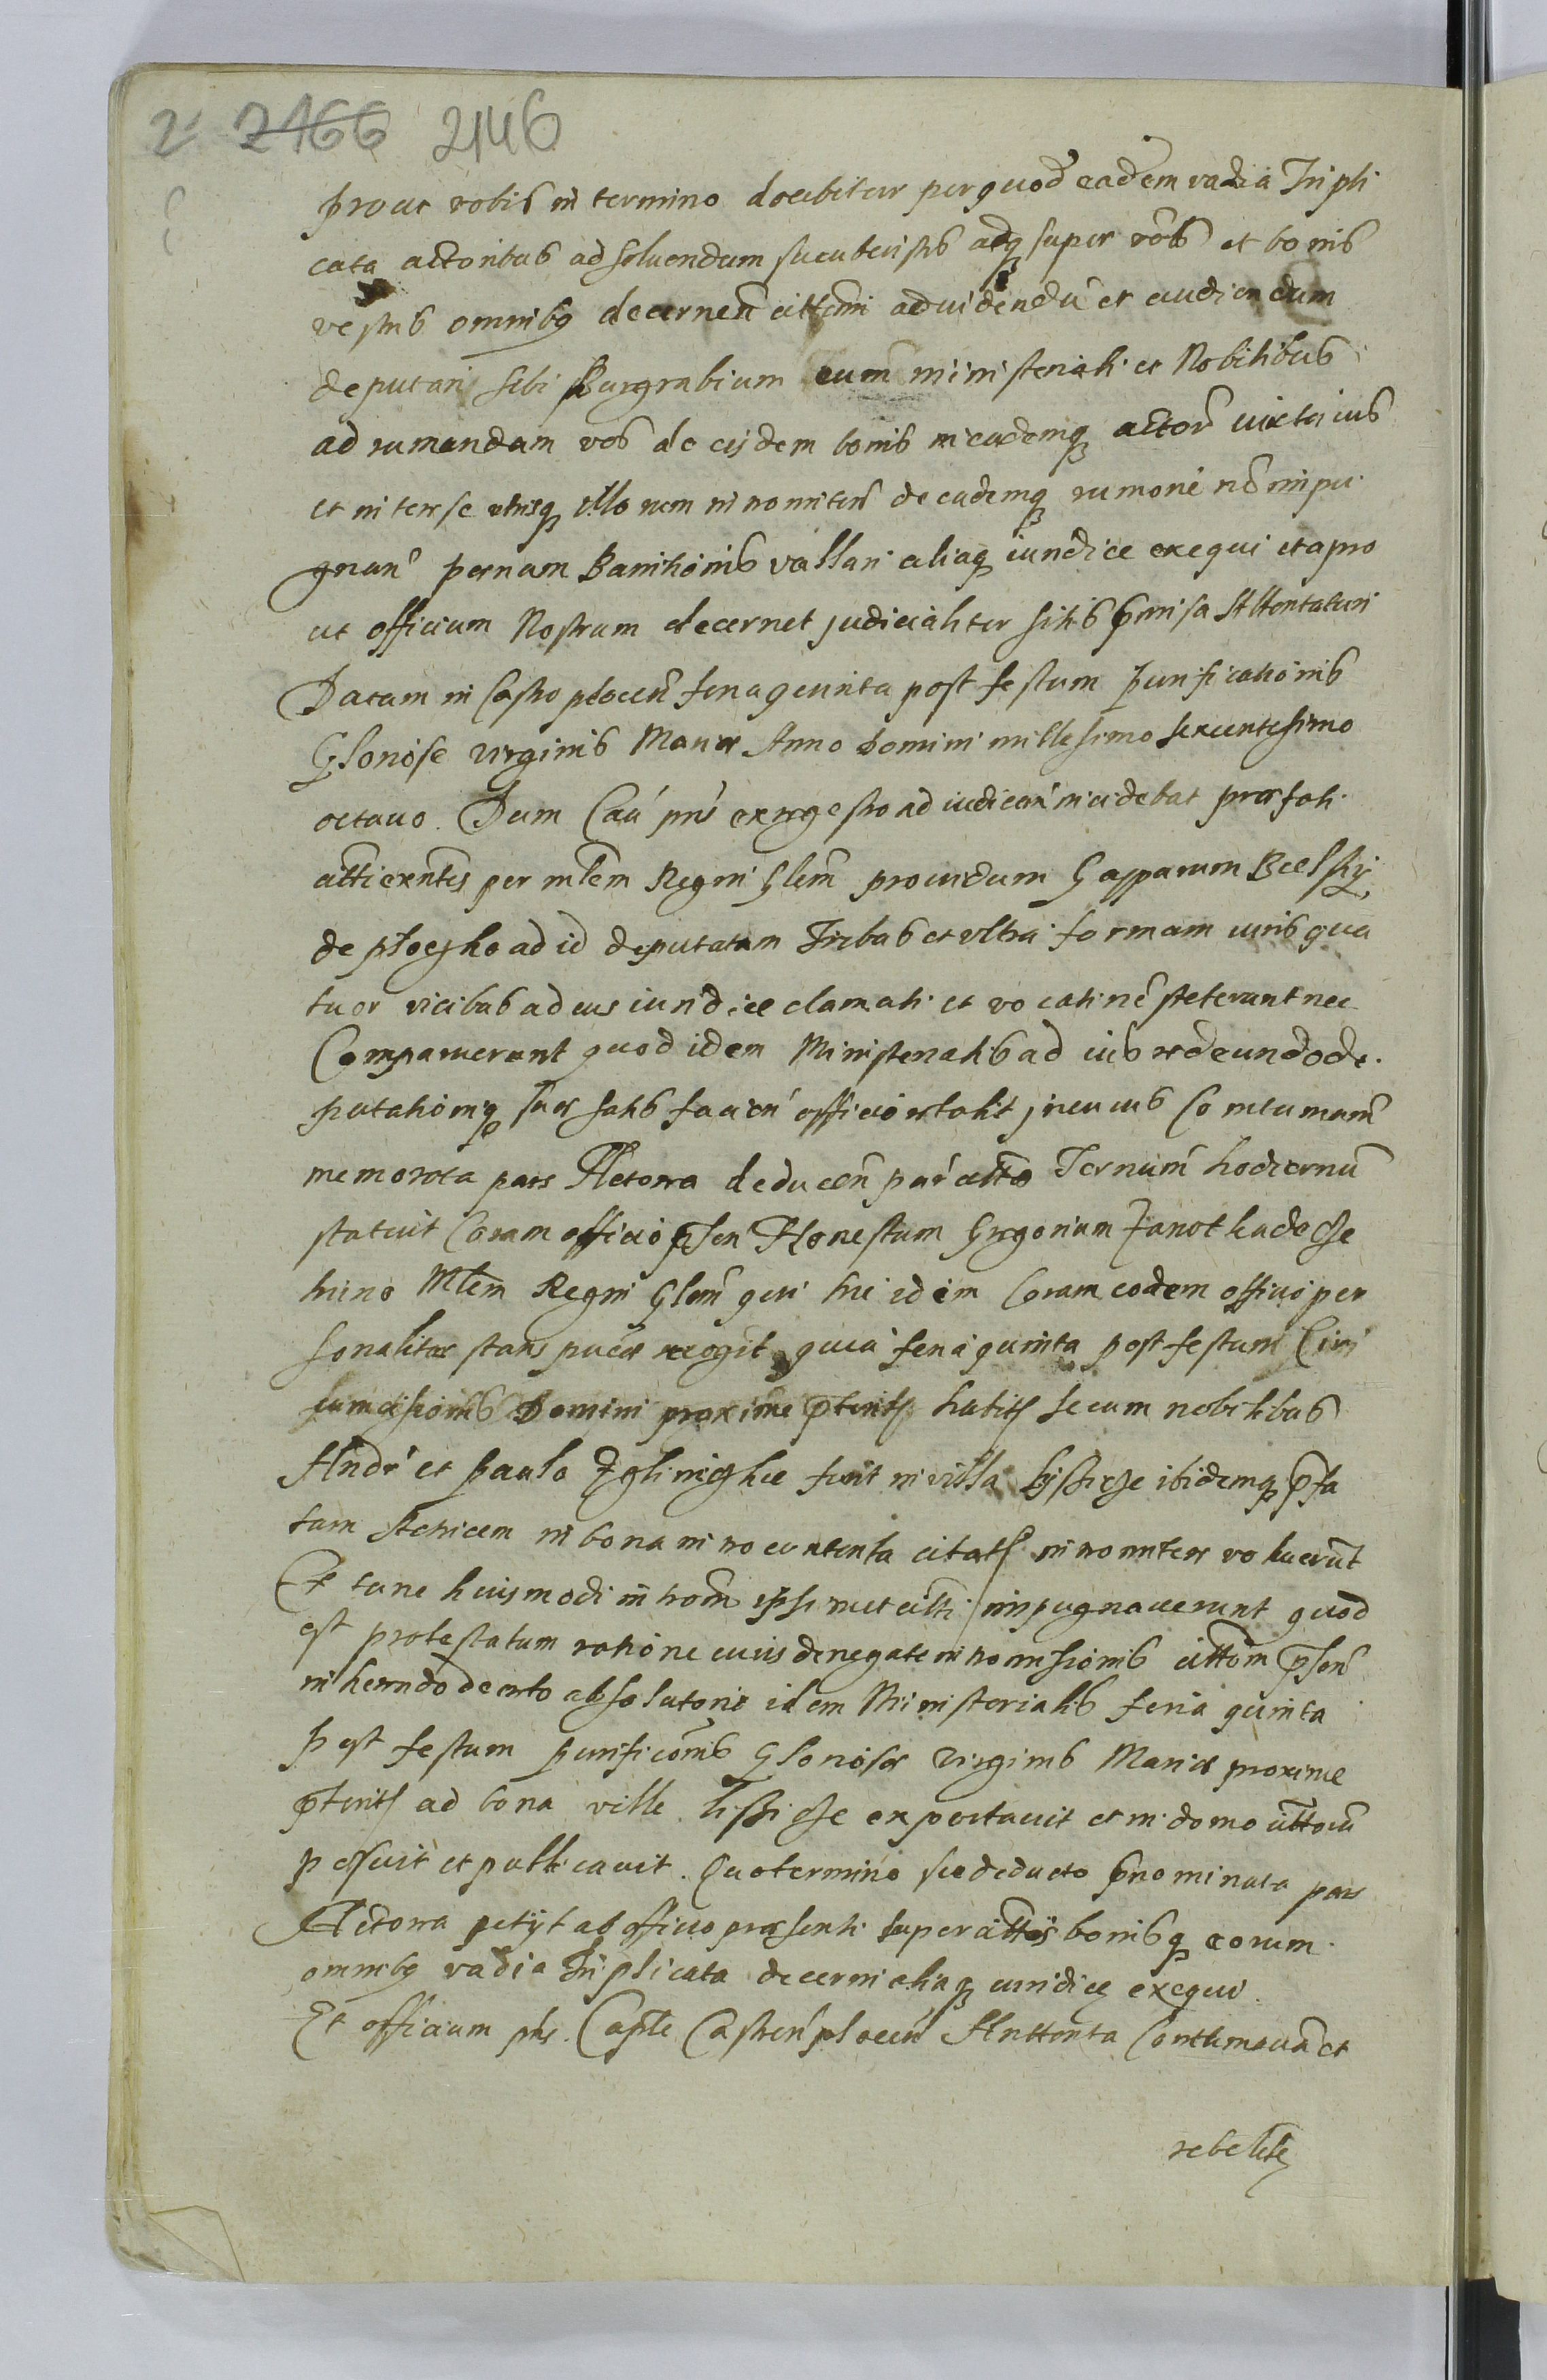 2 2166 2146
prout vobis in termino docebitur per quod eadem vadia Tripli
cata actoribus ad solvendum succubuistis adq super vos et bonis
vestris omnibq decernen citterni ad videndũ et audiendum
deputari sibi Burgrabium cum ministeriali et Nobilibus
ad rumandam vos de eisdem bonis in eademq actor iuxta ius
et inter se utrisq illorum in nomiten de eademq rumone nõ impu
gnan pernam Banitionis vallari aliaq iuridice exequi et a pro
ut officium Nostrum decernet judicialiter sitis pmisa Attentaturi
Datum in Castro plocen feria quinta post festum Purificationis
Gloriose virginis Mariæ Anno domini millesimo sexcentesimo
octavo. Dum Cau pns ex regestro ad iudican incidebat præfati
citti exntes per mlem Regni Glem providum Gasparum Bielsky
de plocsko ad id deputatum Tribus et ultra formam iuris qua
tuor vicibus ad eius iuridice clamati et vocati nõ steterunt nec
Comparuerunt quod idem Ministerialis ad ius reddeundo de
putationiq suæ satis facien officio retulit, in cuius Contumam
memorata pars Actorea deducen par citto Ternum hodiernũ
statuit Coram officio psen Honestum Gregorium Janotha de Sie
lino Mlem Regni Glem qui hic idem Coram eodem officio per
sonaliter stans puce recogit quia feria quinta post festum Cir
cumcisionis Domini proxime pterits habits secum nobilibus
Andr et Paulo Zgliniczkie fuit in villa lyssicze ibidemq pfa
tam Actricem in bona in no contenta citats in nomiter voluerũt
Et tunc huismodi in trom ipsimet citti impugnaverunt quod
est protestatum ratione cuius denegate intromissionis cittom psen
in herendo decreto absolutorie idem Ministerialis feria quinta
post festum purificõnis Gloriosæ virginis Mariæ proxime
pterits ad bona ville lissicze exportavit et in domo cittorũ
posuit et publicavit. Quo termino sic deducto pnominata pars
Actorea petijt ab officio præsenti super cittos bonisq eorum
omnibq vadia Triplicata decerni aliaq iuridice exequi.
Et officium pns. Caple Castren plocen Attenta Contumacia et
rebelle